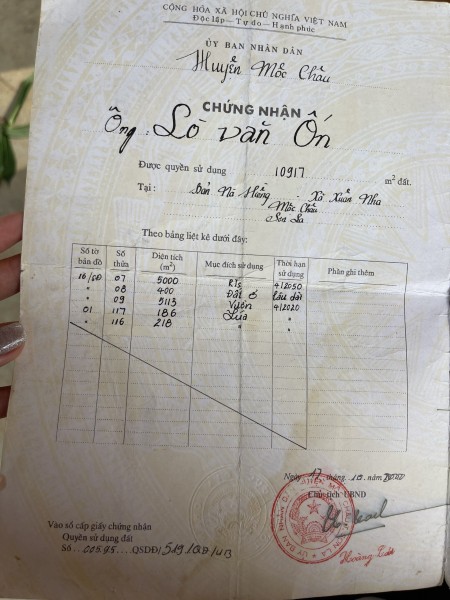 CỘNG HÒA XÃ HỘI CHỦ NGHĨA VIỆT NAM
Độc lập - Tự do - Hạnh phúc
ỦY BAN NHÂN DÂN
Huyện Mộc Châu
CHỨNG NHẬN
Ông: Lò Văn Ốn
Được quyền sử dụng 10917 m² đất.
Tại: Bản Nà Hiềng Xã Xuân Nha
Mộc Châu
Sơn La
Theo bảng liệt kê dưới đây:
Số tờ bản đồ Số thửa Diện tích (m²) Mục đích sử dụng Thời hạn sử dụng Phần ghi thêm
16/ 07 5000 RTS 4/2050
" 08 400 Đất ở Lâu dài
" 09 5113 Vườn 4/2020
01 117 186 Lúa "
" 116 218 " "
Ngày 17 tháng 10 năm 2000
Chủ tịch UBND
Vào sổ cấp giấy chứng nhận
Quyền sử dụng đất
Số 00595 QSDĐ/ 519/QĐ/UB